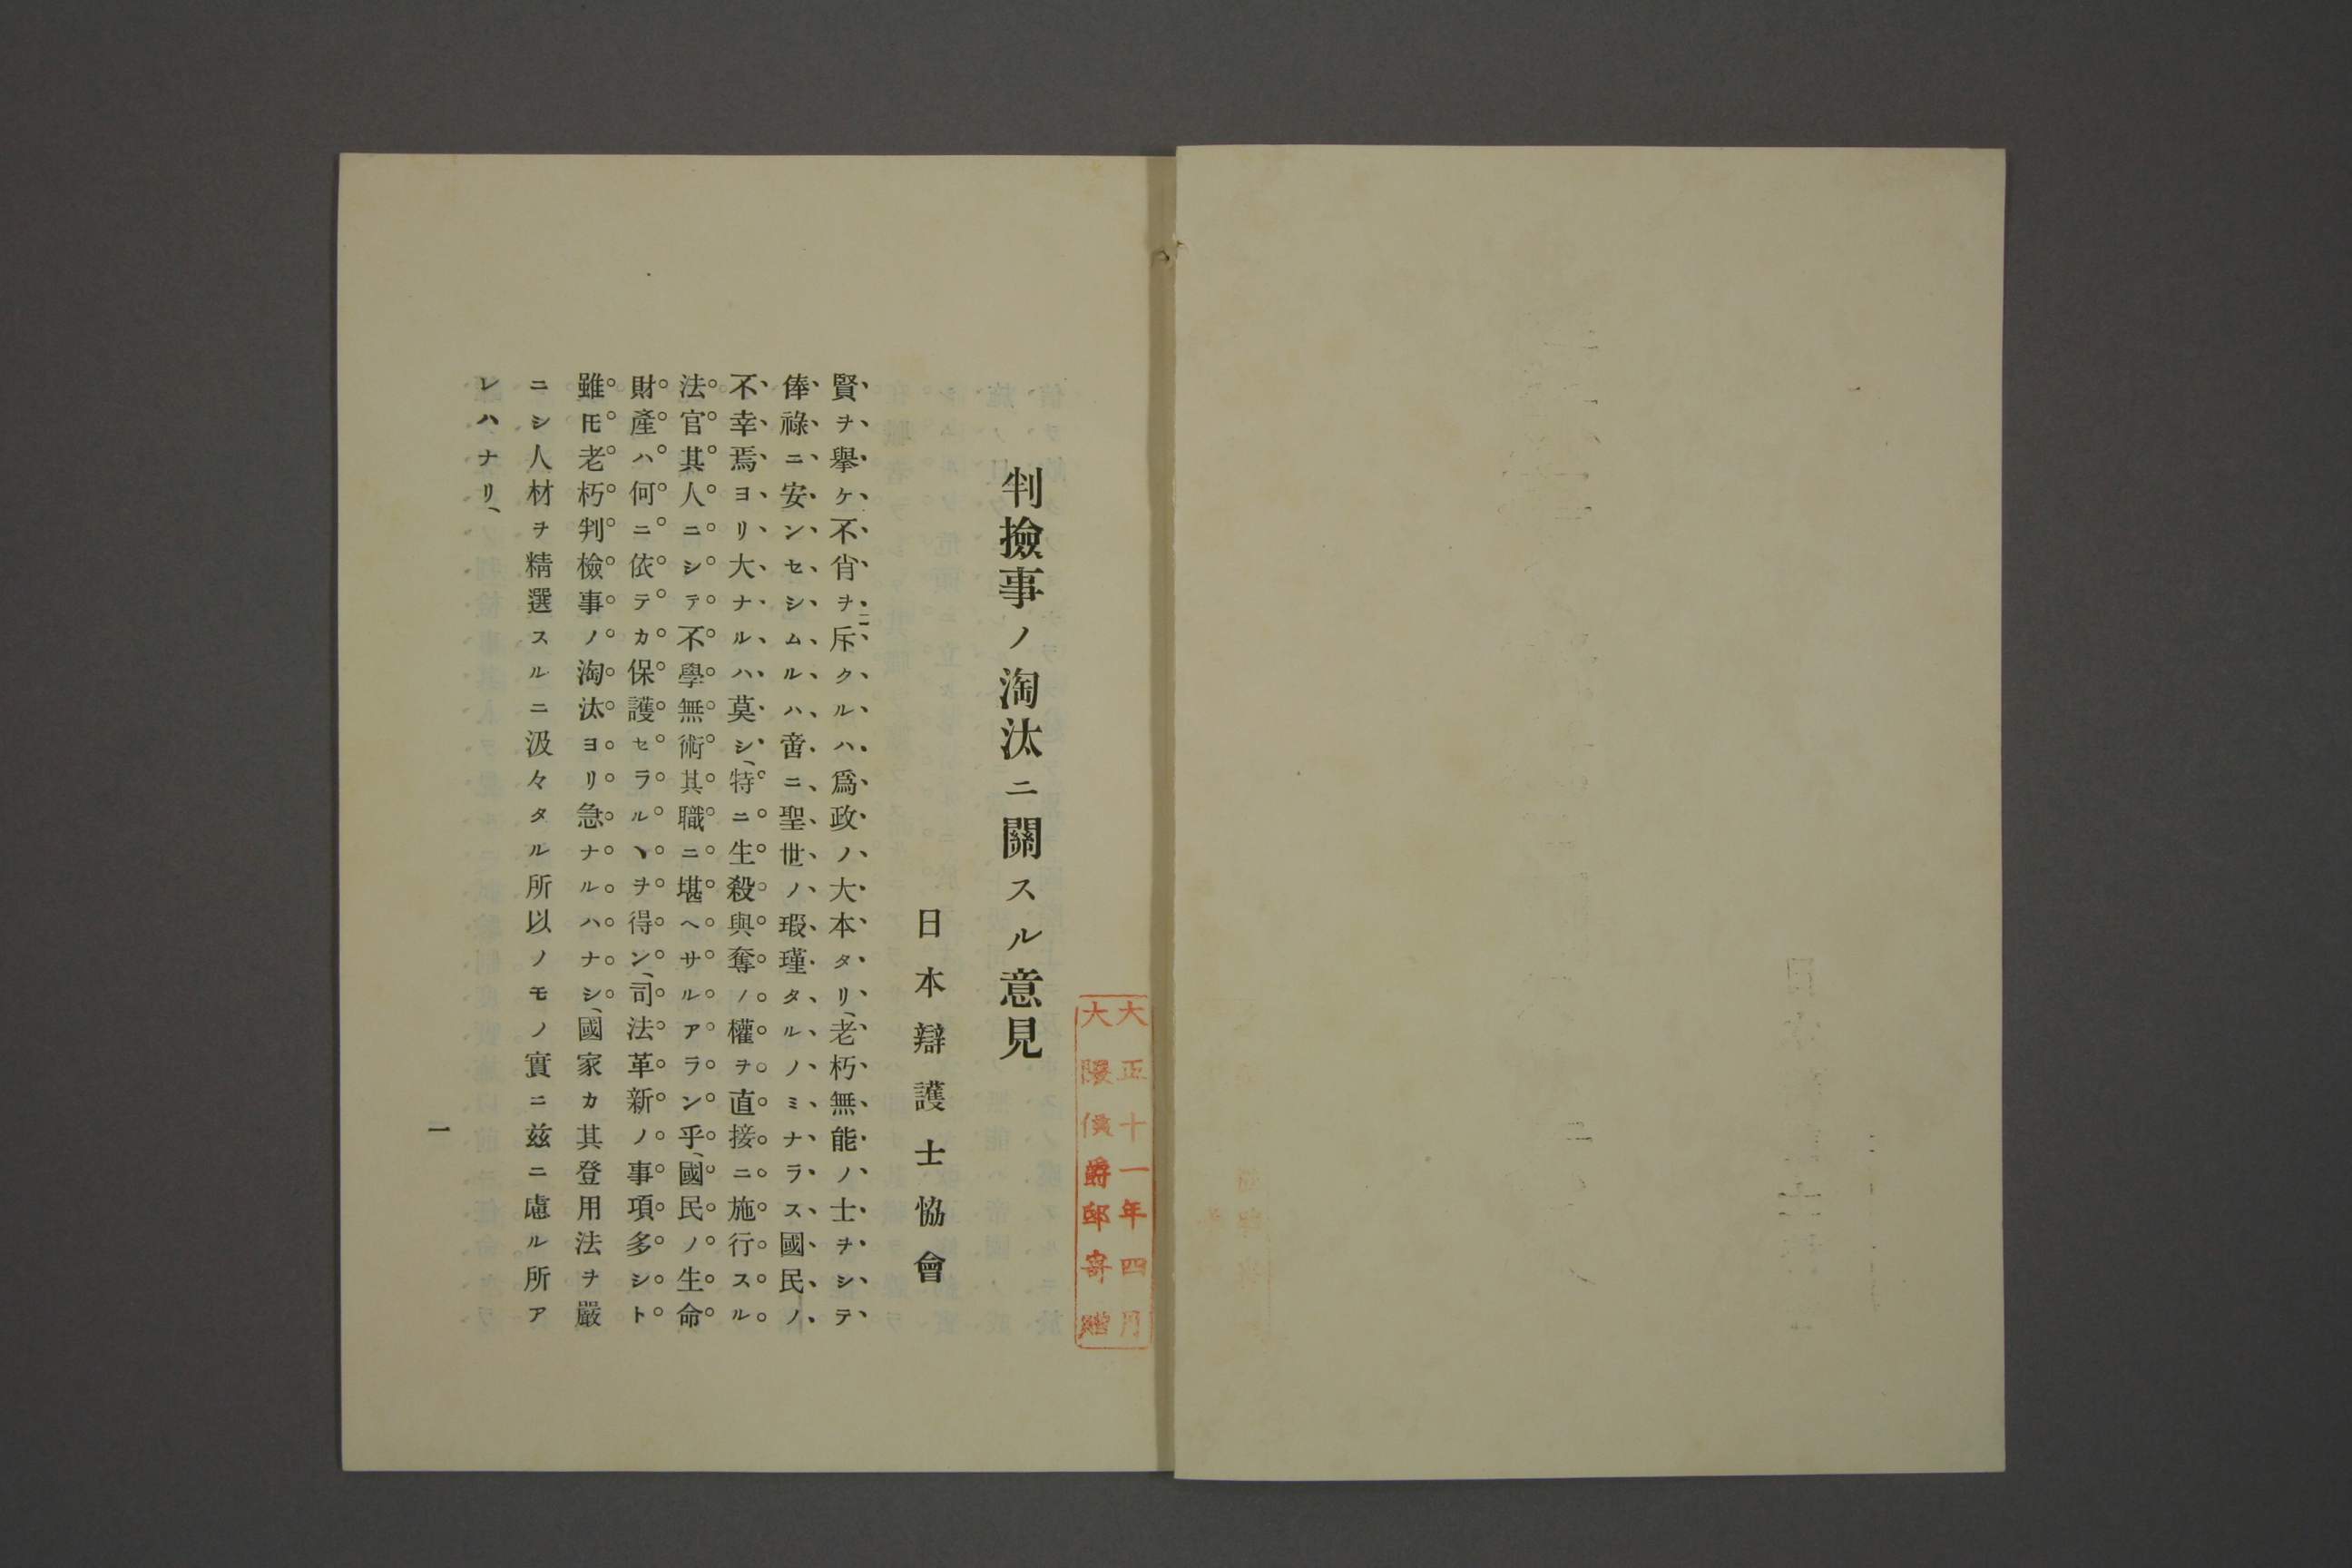 大正十一年四月
大隈侯爵邸寄贈
判撿事ノ淘汰ニ關スル意見
日本辯護士恊會
賢ヲ擧ケ不肖ヲ斥クルハ爲政ノ大本タリ、老朽無能ノ士ヲシテ
俸祿ニ安ンセシムルハ啻ニ聖世ノ瑕瑾タルノミナラス國民ノ
不幸焉ヨリ大ナルハ莫シ、特ニ生殺與奪ノ權ヲ直接ニ施行スル
法官其人ニシテ不學無術其職ニ堪ヘサルアラン乎、國民ノ生命
財產ハ何ニ依テカ保護セラルヽヲ得ン、司法革新ノ事項多シト
雖𪜈老朽判檢事ノ淘汰ヨリ急ナルハナシ、國家カ其登用法ヲ嚴
ニシ人材ヲ精選スルニ汲々タル所以ノモノ實ニ茲ニ慮ル所ア
レハナリ、
一